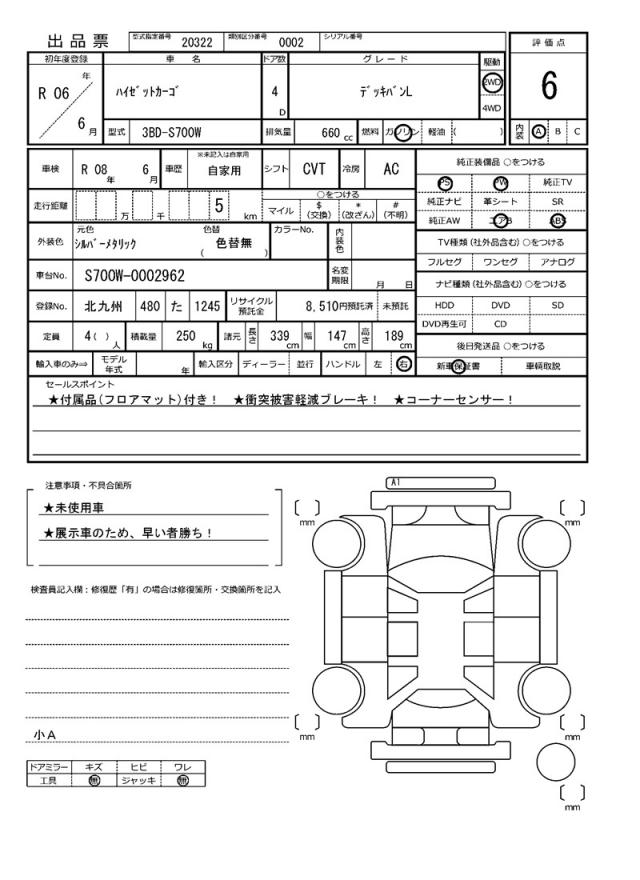 出品票 型式指定番号 20322 類別区分番号 0002 シリアル番号
初年度登録 車名 ドア数 グレード 駆動 評価点
R 06 年 6 月 ﾊｲｾﾞｯﾄｶｰｺﾞ 4 D ﾃﾞｯｷﾊﾞﾝL 2WD 4WD 6
型式 3BD-S700W 排気量 660 cc 燃料 ガソリン 軽油 ( ) 内装 A B C
車検 R 08 年 6 月 車歴 ※未記入は自家用 自家用 シフト CVT 冷房 AC 純正装備品 ○をつける
PS PW 純正TV
走行距離 万 千 5 km ○をつける マイル $(交換) *(改ざん) #(不明) 純正ナビ 革シート SR
純正AW エアB ABS
外装色 元色 ｼﾙﾊﾞｰﾒﾀﾘｯｸ 色替 ( 色替無 ) カラーNo. 内装色 TV種類 (社外品含む) ○をつける
フルセグ ワンセグ アナログ
車台No. S700W-0002962 名変期限 月 日 ナビ種類 (社外品含む) ○をつける
登録No. 北九州 480 た 1245 リサイクル預託金 8,510円預託済 未預託 HDD DVD SD
DVD再生可 CD
定員 4( ) 人 積載量 250 kg 諸元 長さ 339 cm 幅 147 cm 高さ 189 cm 後日発送品 ○をつける
輸入車のみ⇒ モデル年式 年 輸入区分 ディーラー 並行 ハンドル 左 右 新車保証書 車輌取説
セールスポイント
★付属品(フロアマット)付き！ ★衝突被害軽減ブレーキ！ ★コーナーセンサー！
注意事項・不具合箇所
★未使用車
★展示車のため、早い者勝ち！
検査員記入欄：修復歴「有」の場合は修復箇所・交換箇所を記入
小A
ドアミラー キズ ヒビ ワレ
工具 無 ジャッキ 無
A1
mm
mm
mm
mm
mm